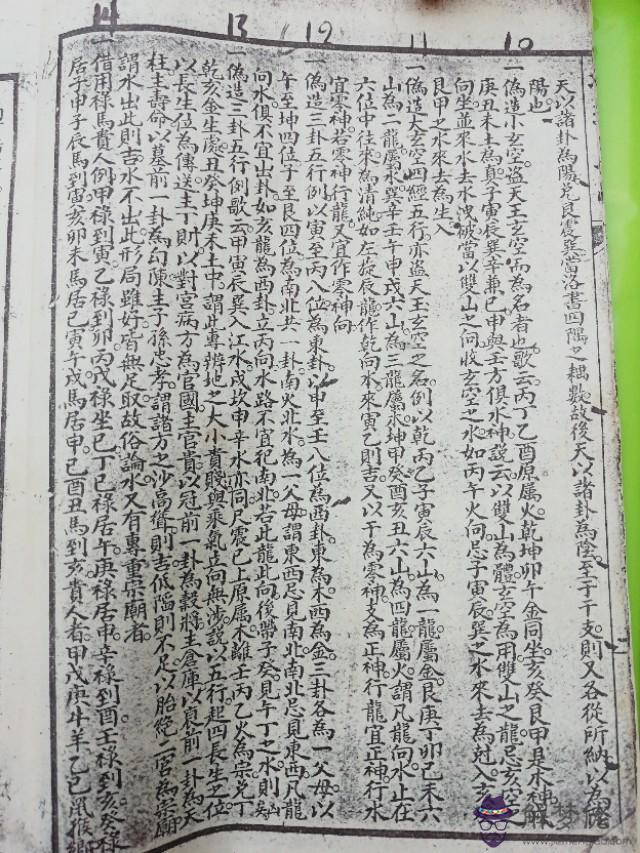 14 13 12 11 10
天以諸卦為陽兌艮震巽當洛書四隅之耦數故後天以諸卦為陰至于干支則又各從所納以為
陽也
一偽造小玄空盜天王玄空而為名者也歌云丙丁乙酉原屬火乾坤卯午金同坐亥癸艮甲是水神
庚丑未土為真子寅辰巽辛兼巳申與壬方俱水神說云以雙山為體玄空為用雙山之龍忌玄空
向坐並來水去水洩被當以雙山之向收玄空之水如丙午火向忌子寅辰巽之水來去為尅入
艮甲之水來去為生入
一偽造大玄空四經五行亦盜天玉玄空之名例以乾丙乙子寅辰六山為一龍屬金艮庚丁卯巳未六
山為二龍屬水巽辛壬午申戌六山為三龍屬木坤甲癸酉亥丑六山為四龍屬火謂凡龍向水止在
六位中往來為清純如左旋辰龍作乾向水來寅乙則吉又以干為零神支為正神行龍宜正神行水
宜零神若零神行龍又宜作零神向
一偽造三卦五行例以寅至丙八位為東卦以申至壬八位為西卦東為木西為金三卦各為一父母以
午至坤四位子至艮四位為南北共一卦南火北水為一父母謂東西忌見南北南北忌見東西凡龍
向水俱不宜出卦如亥龍為西卦立丙向水路不宜犯南北若此龍此向後帶子癸見午丁之水則凶
一偽造三卦五行例歌云甲寅辰巽入江水戌坎申辛水亦同艮震巳上原屬木離壬丙乙火為宗兌丁
乾亥金生處丑癸坤庚未土中謂此專辨地之大小貴賤與乘氣立向無涉說以五行起四長生之位
以長生位為傳送主丁則以對宮病方為官國主官貴以冠前一卦為穀將主倉庫以負前一卦為天
柱主壽命以墓前一卦為勾陳主子孫忠孝謂諸方之沙高聳則吉低陷則不足以胎絕二宮為宗廟
謂水出此則吉水不出此形局雖好皆無足取故俗論水又有專重宗廟者
一借用祿馬貴人例甲祿到寅乙祿到卯丙戊祿坐巳丁己祿居午庚祿居申辛祿到酉壬祿到亥癸祿
居子申子辰馬到寅亥卯未馬居巳寅午戌馬居申巳酉丑馬到亥貴人者甲戊庚牛羊乙己鼠猴鄉
解夢佬